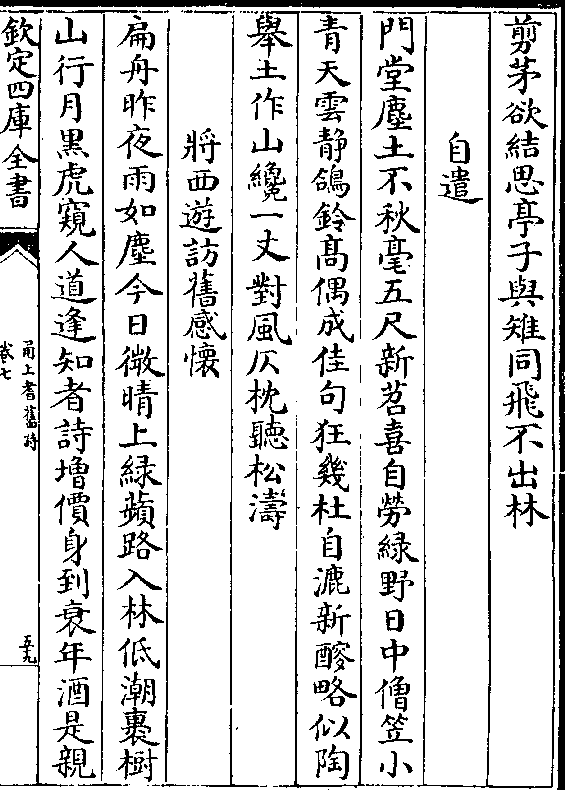 剪茅欲結思亭子與雉同飛不出林
自遣
門堂塵土不秋毫五尺新茗喜自勞緑野日中僧笠小
青天雲静鴿鈴髙偶成佳句狂幾杜自漉新醪略似陶
舉土作山纔一丈對風仄枕聽松濤
將西遊訪舊感懐
扁舟昨夜雨如塵今日微晴上緑蘋路入林低潮裹樹
山行月黒虎窺人道逢知者詩增價身到衰年酒是親
欽定四庫全書
甬上耆舊詩
卷七
五九